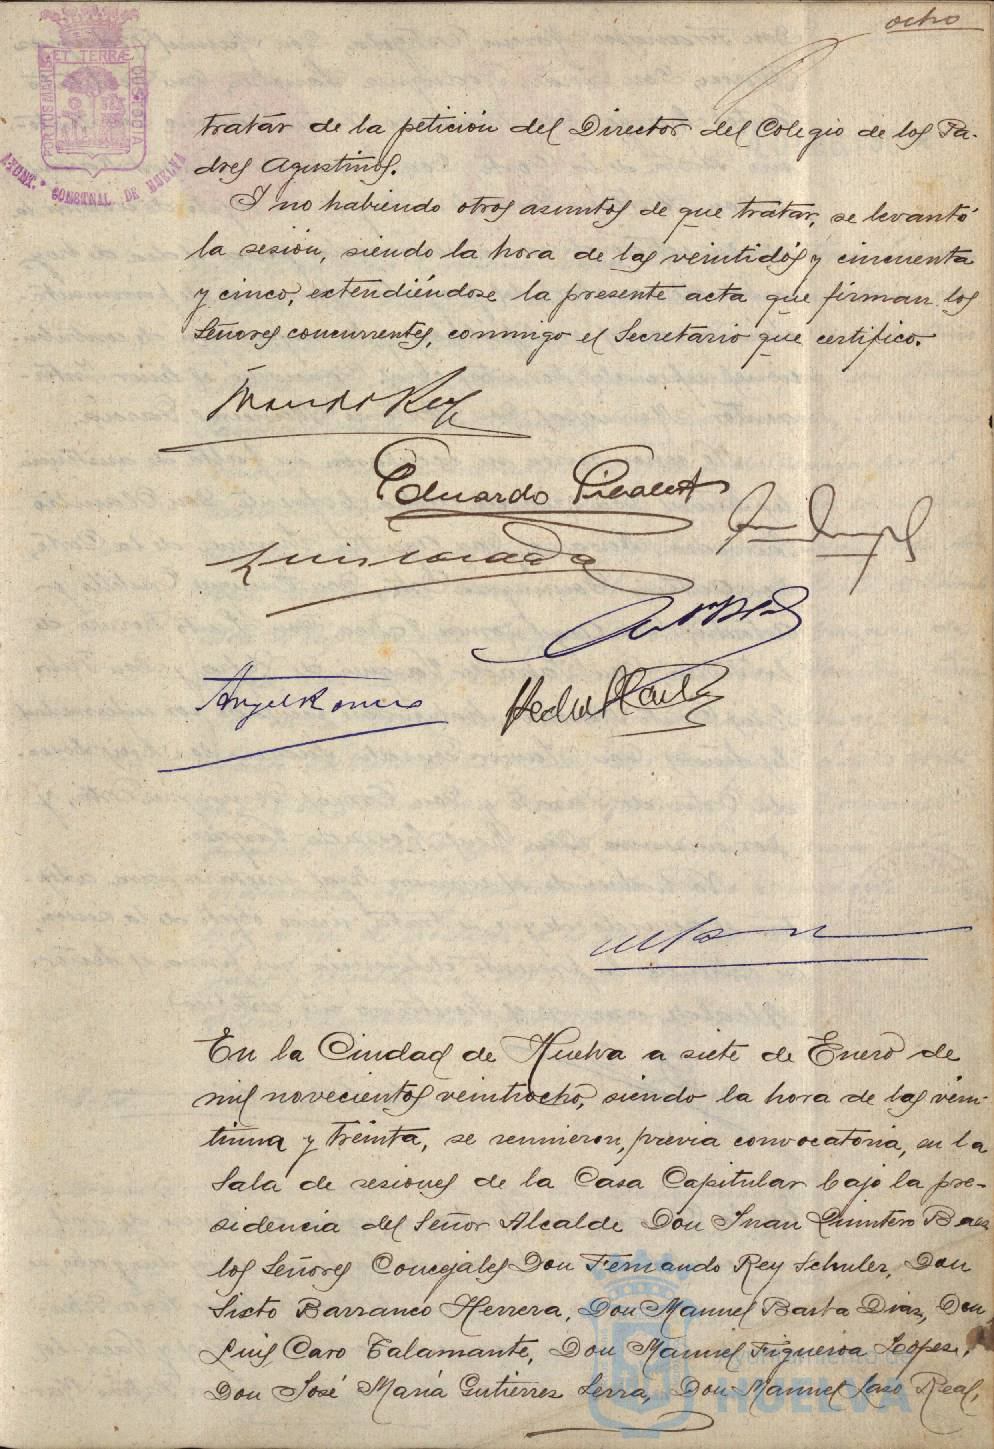 ocho
PORTUS MARIS ET TERRÆ CUSTODIA
AYUNT. CONSTNAL DE HUELVA
tratar de la petición del Director del Colegio de los Pa-
dres Agustinos.
Y no habiendo otros asuntos de que tratar, se levantó
la sesión, siendo la hora de las veintidós y cincuenta
y cinco, extendiéndose la presente acta que firman los
Señores concurrentes, conmigo el Secretario que certifico.
Eduardo
Angel Romero
En la Ciudad de Huelva a siete de Enero de
mil novecientos veintiocho, siendo la hora de las vein-
tiuna y treinta, se reunieron, previa convocatoria, en la
Sala de sesiones de la Casa Capitular bajo la pre-
sidencia del Señor Alcalde Don Juan Quintero Baez
los Señores Concejales Don Fernando Rey Schuler, Don
Sixto Barranco Herrera, Don Manuel Barba Diaz, Don
Luis Caro Talamante, Don Manuel Figueroa Lopez,
Don José María Gutierrez Serra, Don Manuel Laso Real,
Ayuntamiento de
HUELVA